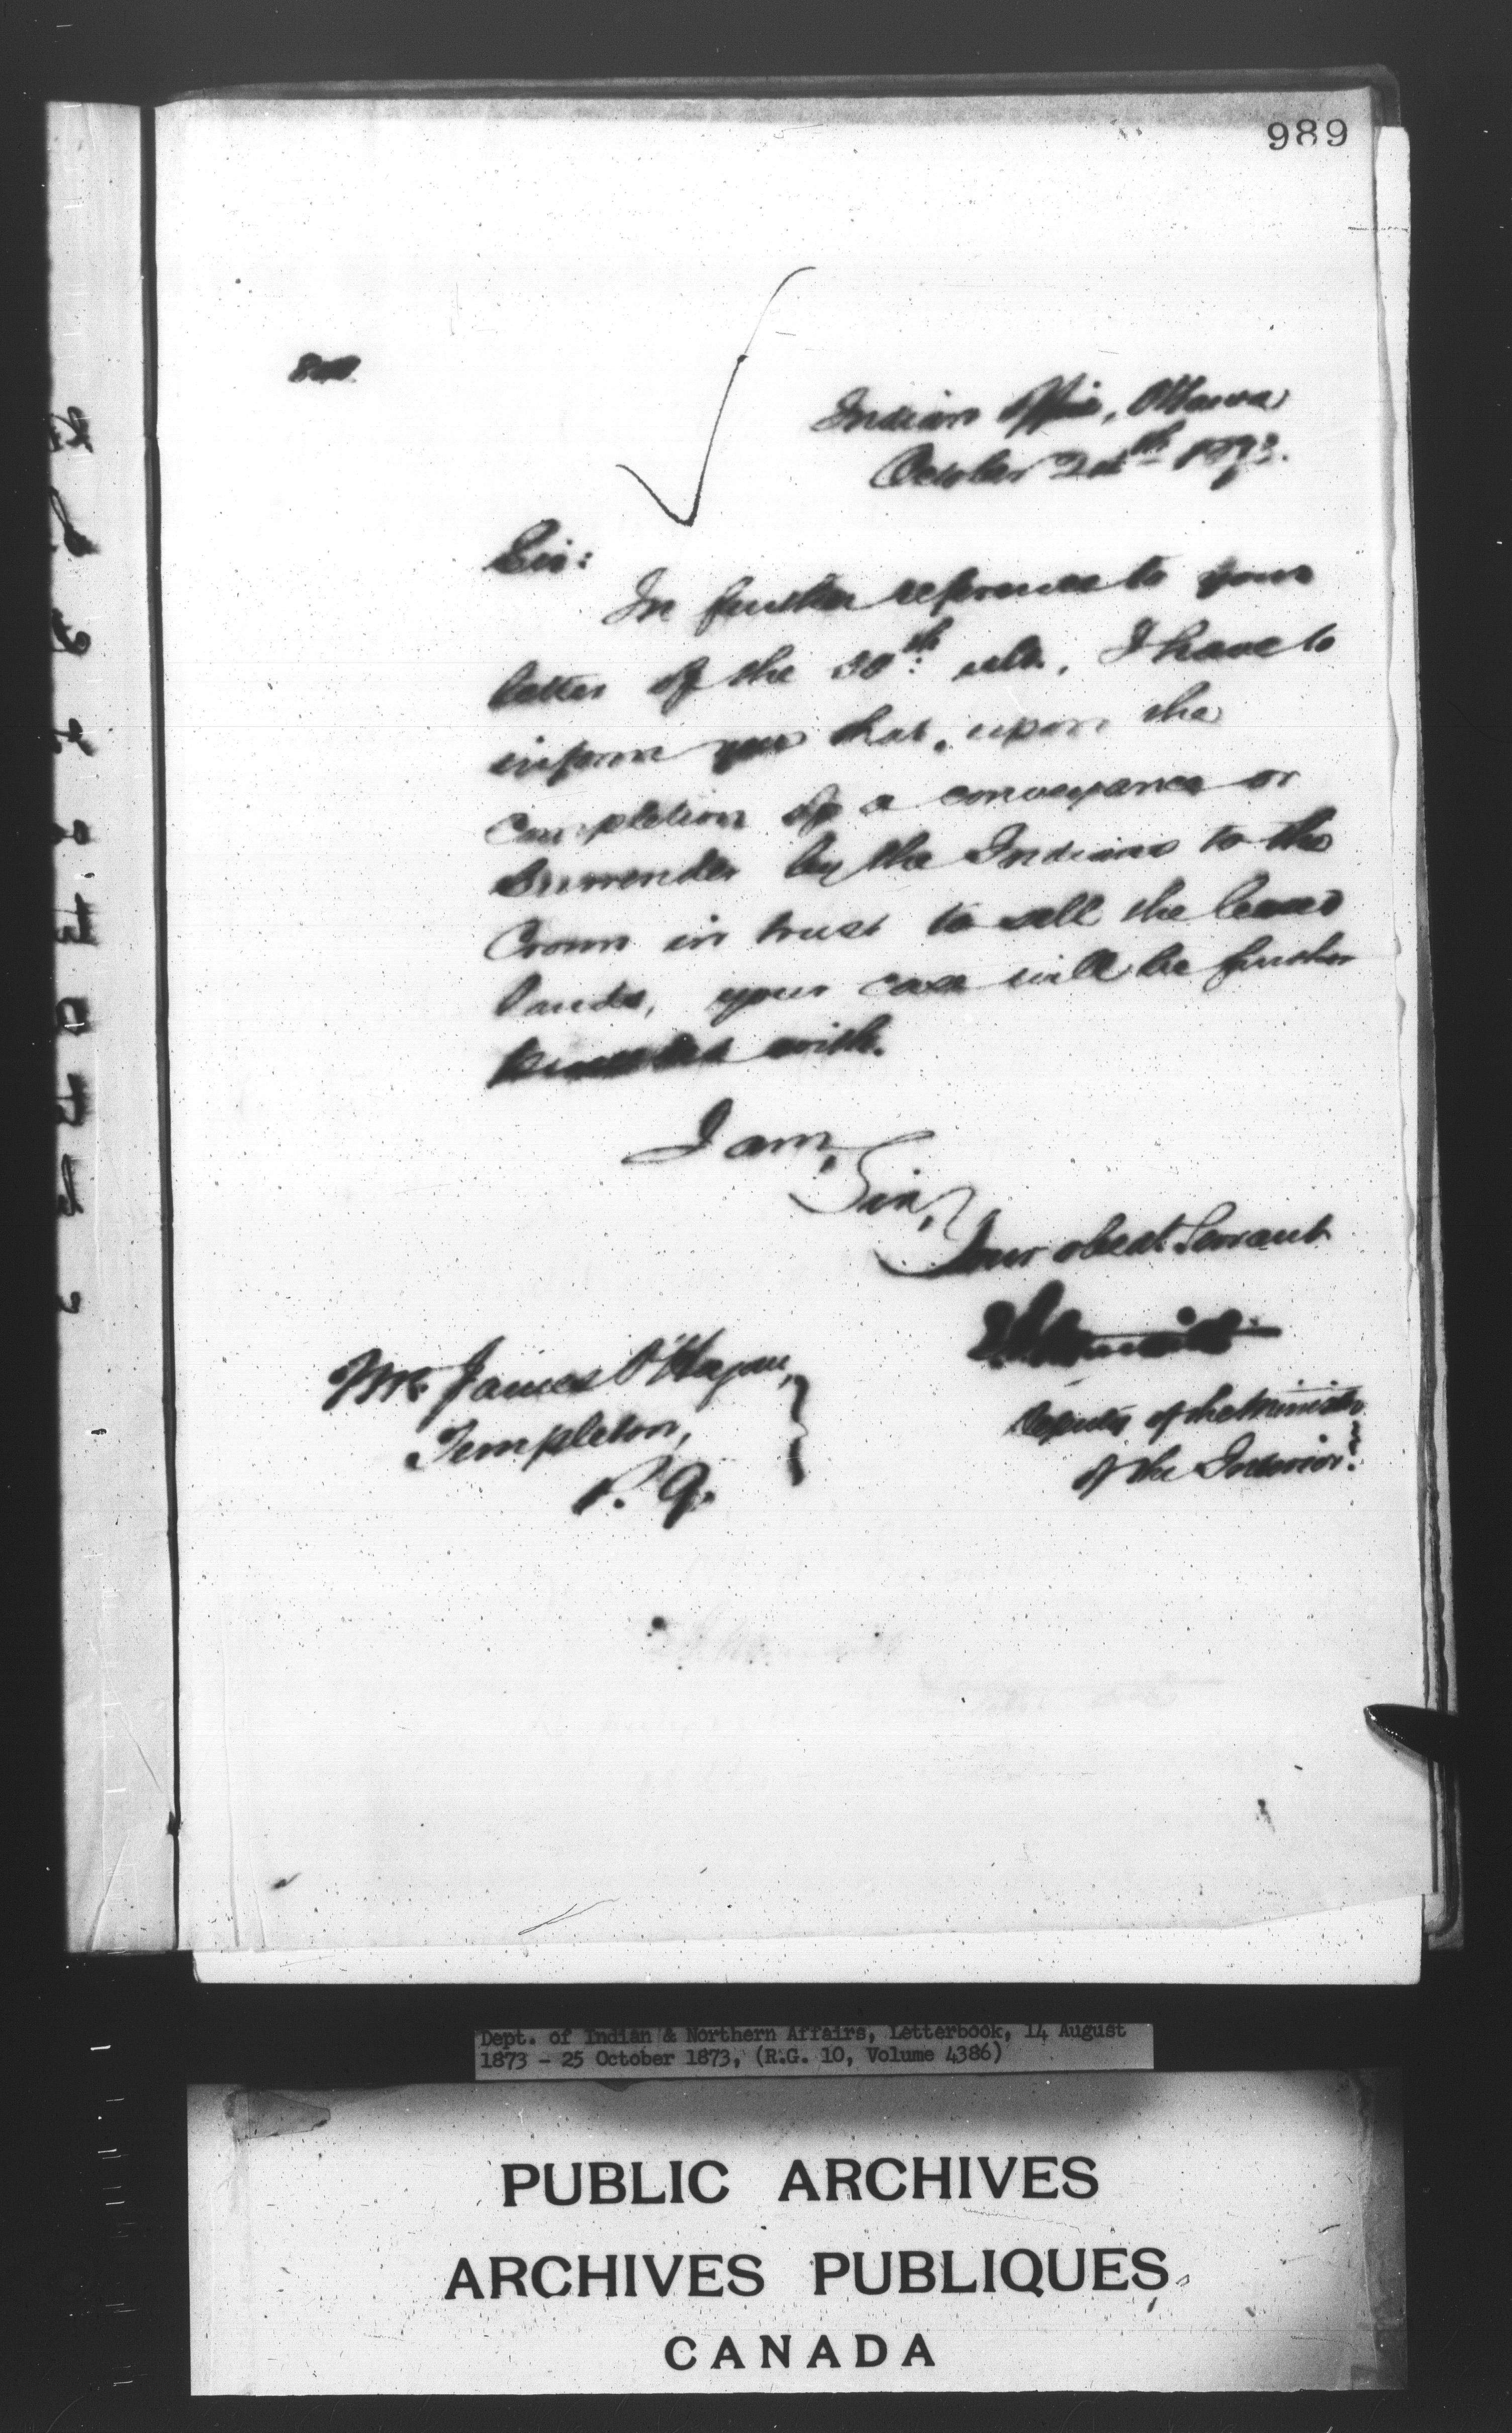 989
Indian Office, Ottawa
October 24th 1873.
Sir:
In further reference to your
letter of the 30th ulto, I have to
inform you that, upon the
completion of a conveyance or
Surrender by the Indians to the
Crown in trust to sell the leased
lands, your case will be further
with.
I am,
Sir,
Your obedt Servant
Deputy of the Minister
of the Interior.
Mr. James O'Hagan,
Templeton,
P. Q.
Dept. of Indian & Northern Affairs, Letterbook, 14 August
1873 - 25 October 1873, (R.G. 10, Volume 4386)
PUBLIC ARCHIVES
ARCHIVES PUBLIQUES
CANADA